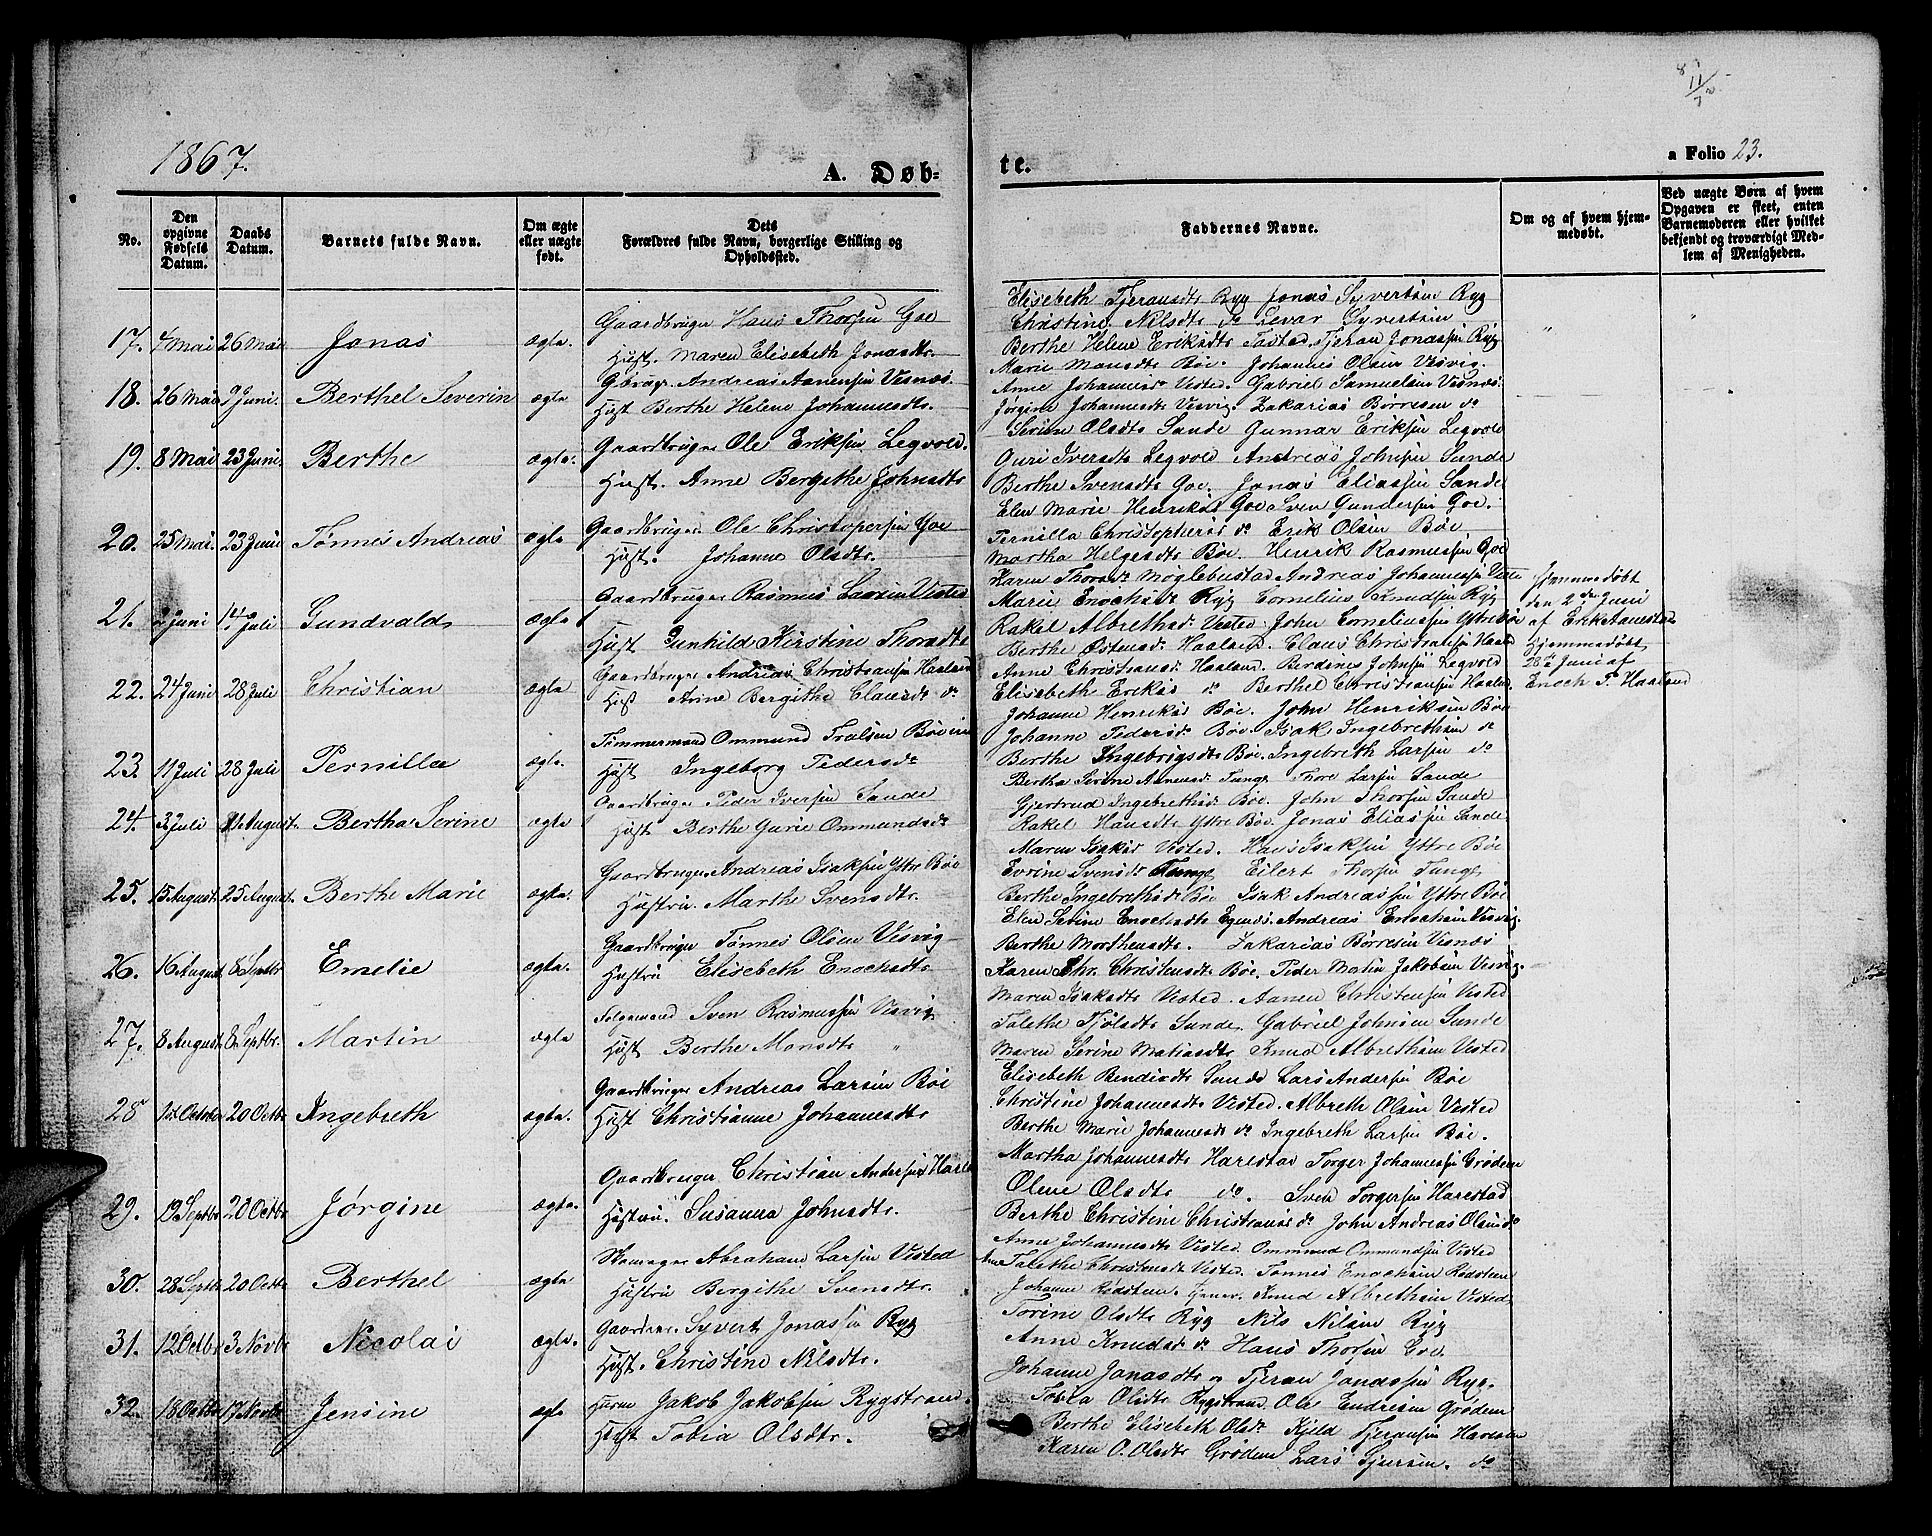 1867.
A. Døb-
te.
a Folio 23.
No.
Den opgivne Fødsels Datum.
Daabs Datum.
Barnets fulde Navn.
Om ægte eller uægte født.
Dets Forældres fulde Navn, borgerlige Stilling og Opholdssted.
Faddernes Navne.
Om og af hvem hjemmedøbt.
Ved uægte Børn af hvem Opgaven er skeet, enten Barnemoderen eller hvilket bekjendt og troværdigt Medlem af Menigheden.
17. 4 Mai 26 Mai Jonas ægte
Gaardbruger Hans Thorsen Goe
Hust. Maren Elisabeth Jonasdtr.
Elisebeth Tjeransdtr Ryg Jonas Syvertsen Ryg
Christine Nilsdtr do Sevar Syvertsen
Berthe Helene Eriksdtr Tasted. Tjeran Jonassen Ryg
18. 26 Mai 2 Juni. Berthel Severin ægte
Gbruger Andreas Aanensen Vesnæs
Hust Berthe Helene Johannesdtr.
Marie Monsdtr Bøe. Johannes Olsen Vesvig.
Anne Johannesdr Visted. Gabriel Samuelsen Vesnæs
Jørgine Johannesdtr Vesvig. Zakarias Børresen do
19. 8 Mai 23 Juni. Berthe ægte.
Gaardbruger Ole Eriksen Legvold
Hust. Anne Bergithe Johnsdtr
Serine Olsdtr Sande Gunnar Eriksen Legvold
Guri Iversdtr Legvold Andreas Johnsen Sunde
Berthe Svensdtr Goe. Jonas Eliassen Sande
20. 25 Mai. 23 Juni Tønnes Andreas ægte
Gaardbruger Ole Christopersen Goe
Hust. Johanne Olsdtr.
Elen Marie Henriksd Goe Sven Gundersen Goe.
Pernilla Christophersd do Erik Olsen Bøe
Martha Helgesdtr Bøe. Henrik Rasmussen Goe
21. 2 Juni 14 Juli Gundvald ægte
Gaardbruger Rasmus Larsen Visted
Hust Gunhild Kirstine Thorsdtr
Karen Thorsdr Møglebustad Andreas Johannessen
Marie Enochsdr Ryg Cornelius Knudsen Ryg
Rakel Albrethsd Visted. John Corneliussen Ytrebøe
Hjemmedøbt
den 2de Juni
af Erik Aanestad
22. 24 Juni 28 Juli Christian ægte
Gaardbruger Andreas Christiansen Haaland
Hust Anne Bergithe Clausdtr do
Berthe Østensd. Haaland. Claus Christiansen Haaland
Anne Christiansd. Haaland. Berdines Johnsen Legvold
Elisebeth Eriksd do Berthel Christiansen Haaland
Hjemmedøbt
28de Juni af
Enoch T. Haaland
23. 11 Juli 28 Juli Pernilla ægte.
Tømmermand Ommund Trulsen Bøe
Hust Ingeborg Pedersdr
Johanne Henriksd Bøe. John Henriksen Bøe
Johanne Pedersd. Bøe. Isak Ingebrethsen do
Berthe Ingebrigsdtr Bøe. Ingebreth Larsen do
24. 3 Juli August. Bertha Serine ægte
Gaardbruger Peder Iversen Sande
Hust Berthe Gurie Ommundsdr
Bertha Serine Aanensd. Tunge Thore Larsen Sande
Gjertrud Ingebrethsd. Bøe. John Thorsen Sande
Rakel Hansdtr Yttre Bøe. Jonas Eliassen Sande
25. 15 August. 25 August. Berthe Marie ægte.
Gaardbruger Andreas Isaksen Yttre Bøe
Hustru. Marthe Svensdtr.
Maren Isaksd Visted. Hans Isaksen Yttre Bøe
Evrine Svensdr Tunge Eilert Thorsen Tunge
Berthe Ingebrethsdr Bøe Isak Andreassen Yttre Bøe
26. 16 August 8 Septbr Emelie ægte.
Gaardbruger Tønnes Olsen Vesvig
Hustru Elisebeth Enochsdtr
Elen Serine Enochsdtr Egenes. Andreas Enochsen Vesvig.
Berthe Morthensdtr. Zakarias Børresen Vesnæs
Karen Chr. Christensdtr Bøe. Peder Matin Jakobsen Vesvig.
27. 8 August 8 Septbr. Martin ægte
Sven Rasmussen Vesvig
Hust Berthe Monsdtr "
Maren Isaksdtr Visted. Aanen Christensen Visted
Talethe Fjølsdtr Sunde. Gabriel Johnsen Sunde
Maren Serine Matiasdtr Knud Albrethsen Visted
28 Octobr 20 Octbr Ingebreth ægte.
Gaardbruger Andreas Larsen Bøe
Hust Christianne Johannesdtr
Elisebeth Bendixdtr Sande Lars Andersen Bøe
Christine Johannesdtr Visted. Albreth Olsen Visted
Berthe Marie Johannesd do Ingebreth Larsen Bøe.
29. 19 Septbr 20 Octbr Jørgine ægte.
Gaardbruger Christian Andersen
Hustru. Susanna Johnsdtr.
Martha Johannesdtr Harestad Torger Johannessen Grødem
Olene Olsdtr do. Sven Torgersen Harestad
Berthe Christine Christiansd do John Andreas Olsen do
30. 28 Septbr 20 Octbr Berthel ægte
Abraham Larsen Visted
Hustru Bergithe Svensdtr.
Anne Johannesdtr Visted. Ommund Ommundsen Visted
Ane Talethe Christensdtr Visted. Tønnes Enochsen Rødsteen
Johanne Rødsteen. Knud Albrethsen Visted
31. 12 Octbr 3 Novbr Nicolai ægte.
Syvert Jonassen Ryg
Hust. Christine Nilsdtr.
Torine Olsdtr Ryg Nils Nilsen Ryg
Anne Knudsd do Hans Thorsen Goe
Johanne Jonasdtr Tjeran Jonassen Ryg.
32. 18 Octbr 17 Novbr Jensine
Jakob Jakobsen Rygstrand.
Hust Tobia Olsdtr.
Tobia Olsdtr Rygstrand. Ole Endresen Grødem
Berthe Elisebeth Olsdr Kjeld Tjeransen
Karen O. Olsdtr Grødem Lars Sjursen. do